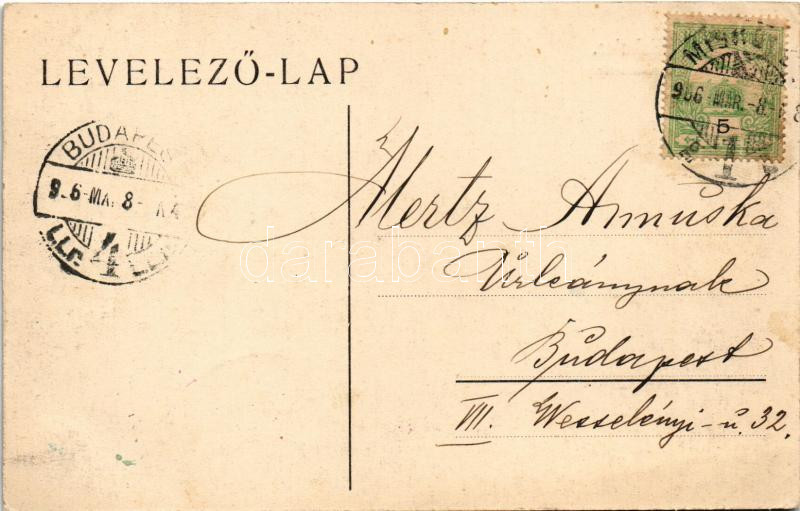 LEVELEZŐ-LAP
BUDAPES
9.6-MA. 8-
4
MISKO
906-MAR.-8
5
Mertz Annuska
Urleánynak
Budapest
VII. Wesselényi-u. 32.
darabanth